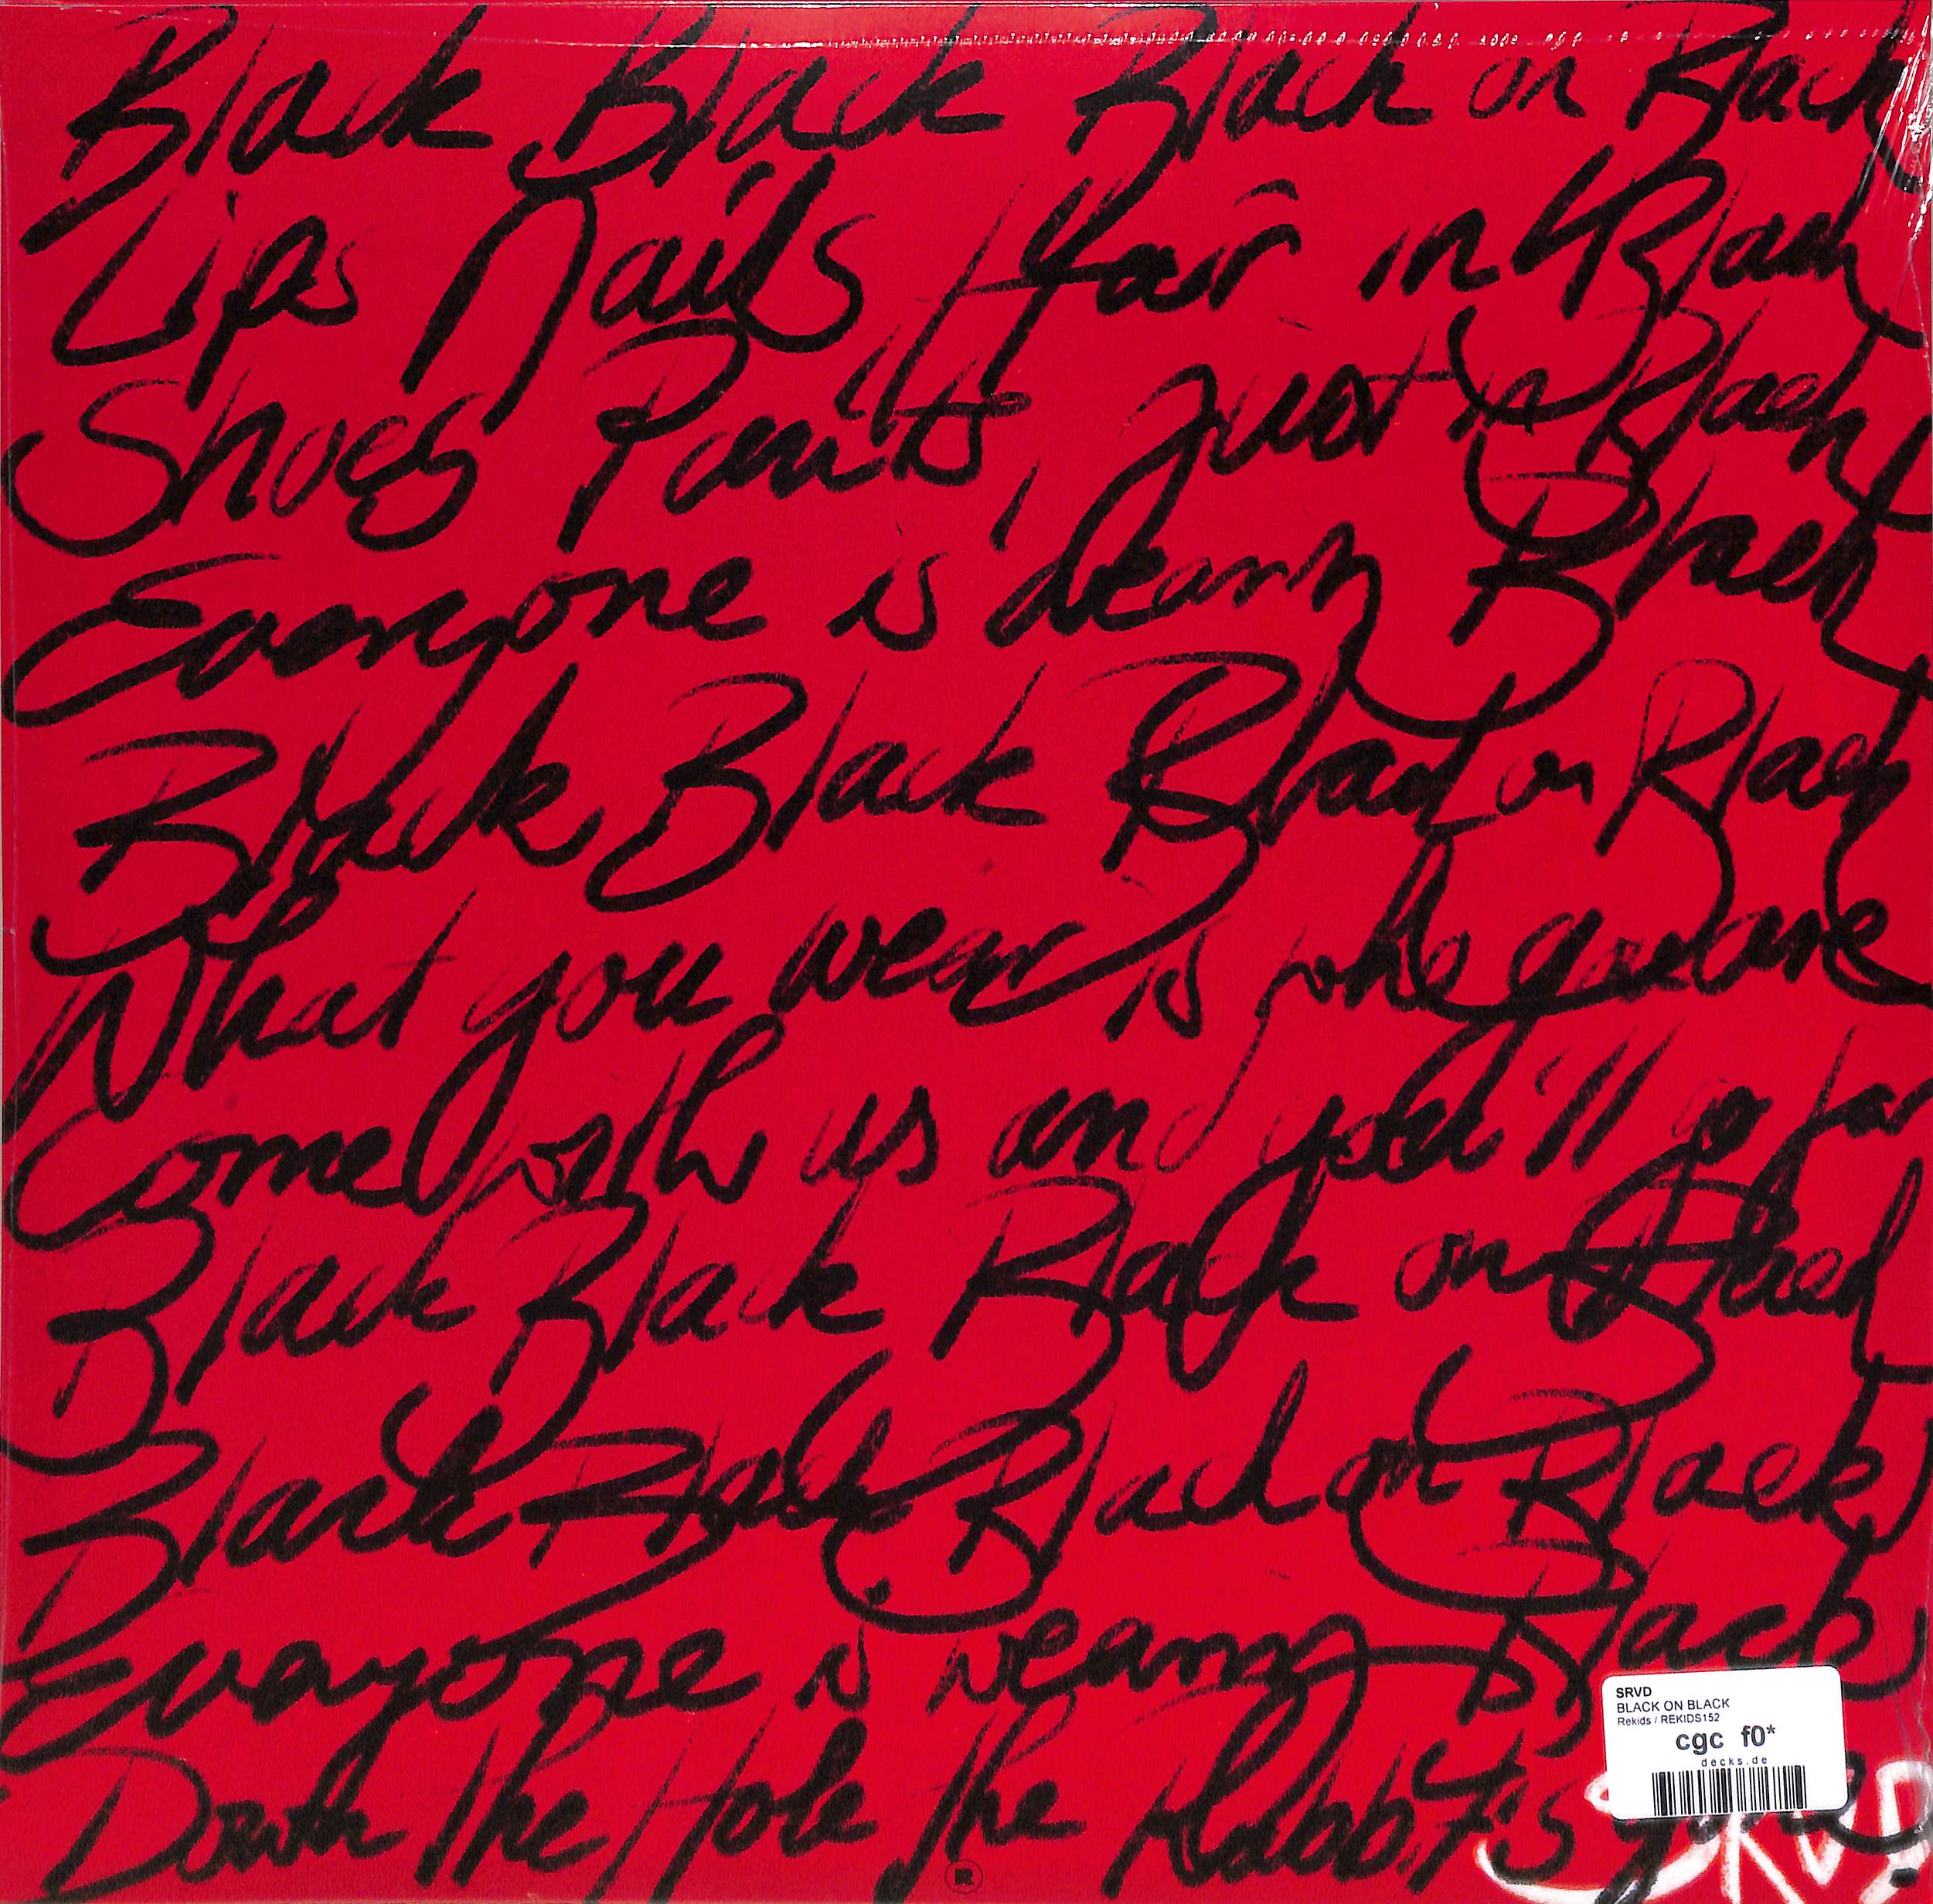 Black Black Black on Black
Lips Nails Hair in Black
Shoes Pants, just in Black
Everyone is wearing Black
Black Black Black on Black
What you wear is who you are
Come with us and you'll go far
Black Black Black on Black
Black Black Black on Black
Everyone is wearing Black
Down the Hole the Rabbit's gone
SRVD
BLACK ON BLACK
Rekids / REKIDS152
cgc f0*
decks.de
R
SRVD